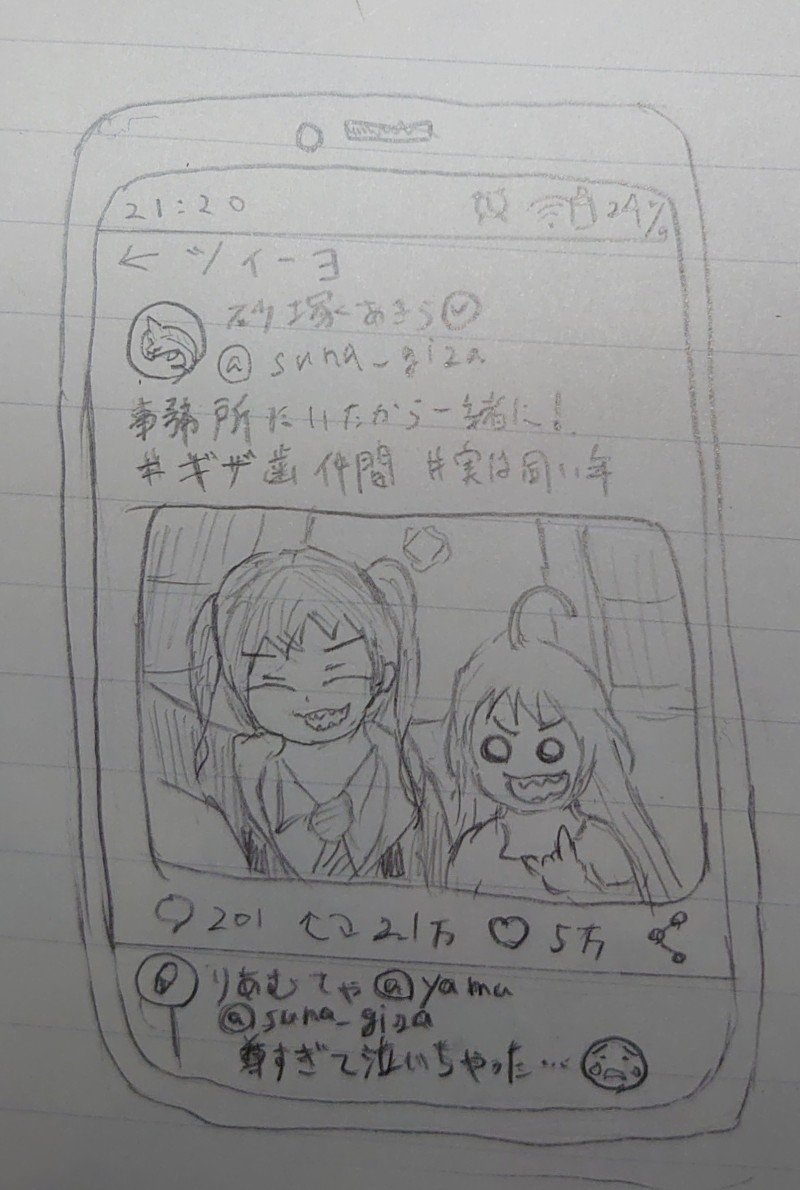 21:20 24%
← ツイーヨ
砂塚あきら
@suna_giza
事務所にいたから一緒に!
#ギザ歯仲間 #実は同い年
201 2.1万 5万
りあむてゃ@yamu
@suna_giza
尊すぎて泣いちゃった…